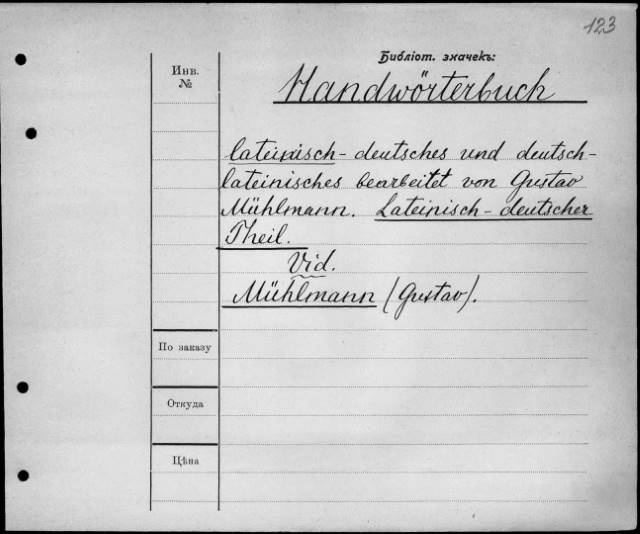 123
Библіот. значекъ:
Инв.
№
Handwörterbuch
lateinisch-deutsches und deutsch-
lateinisches bearbeitet von Gustav
Mühlmann. Lateinisch-deutscher
Theil.
Vid.
Mühlmann (Gustav).
По заказу
Откуда
Цѣна